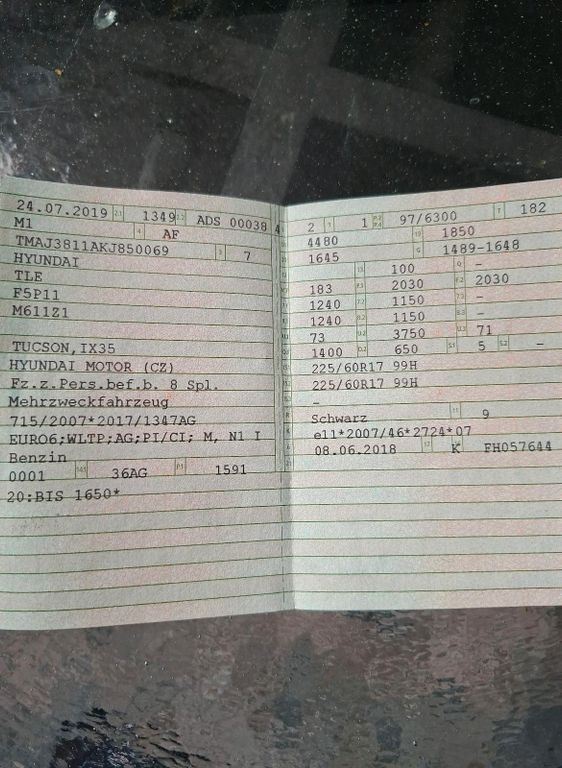 24.07.2019 2.1 1349 2.2 ADS 00038 4
M1 4 AF
TMAJ3811AKJ850069 3 7
HYUNDAI
TLE
F5P11
M611Z1
TUCSON,IX35
HYUNDAI MOTOR (CZ)
Fz.z.Pers.bef.b. 8 Spl.
Mehrzweckfahrzeug
715/2007*2017/1347AG
EURO6;WLTP;AG;PI/CI; M, N1 I
Benzin
0001 14.1 36AG P.1 1591
20:BIS 1650*
2 9 1 P.2 P.4 97/6300 T 182
4480 19 1850
1645 G 1489-1648
13 100 Q -
183 F.1 2030 F.2 2030
1240 7.2 1150 7.3 -
1240 8.2 1150 8.3 -
73 U.2 3750 U.3 71
1400 O.2 650 S.1 5 S.2 -
225/60R17 99H
225/60R17 99H
-
Schwarz 11 9
e11*2007/46*2724*07
08.06.2018 17 K 16 FH057644